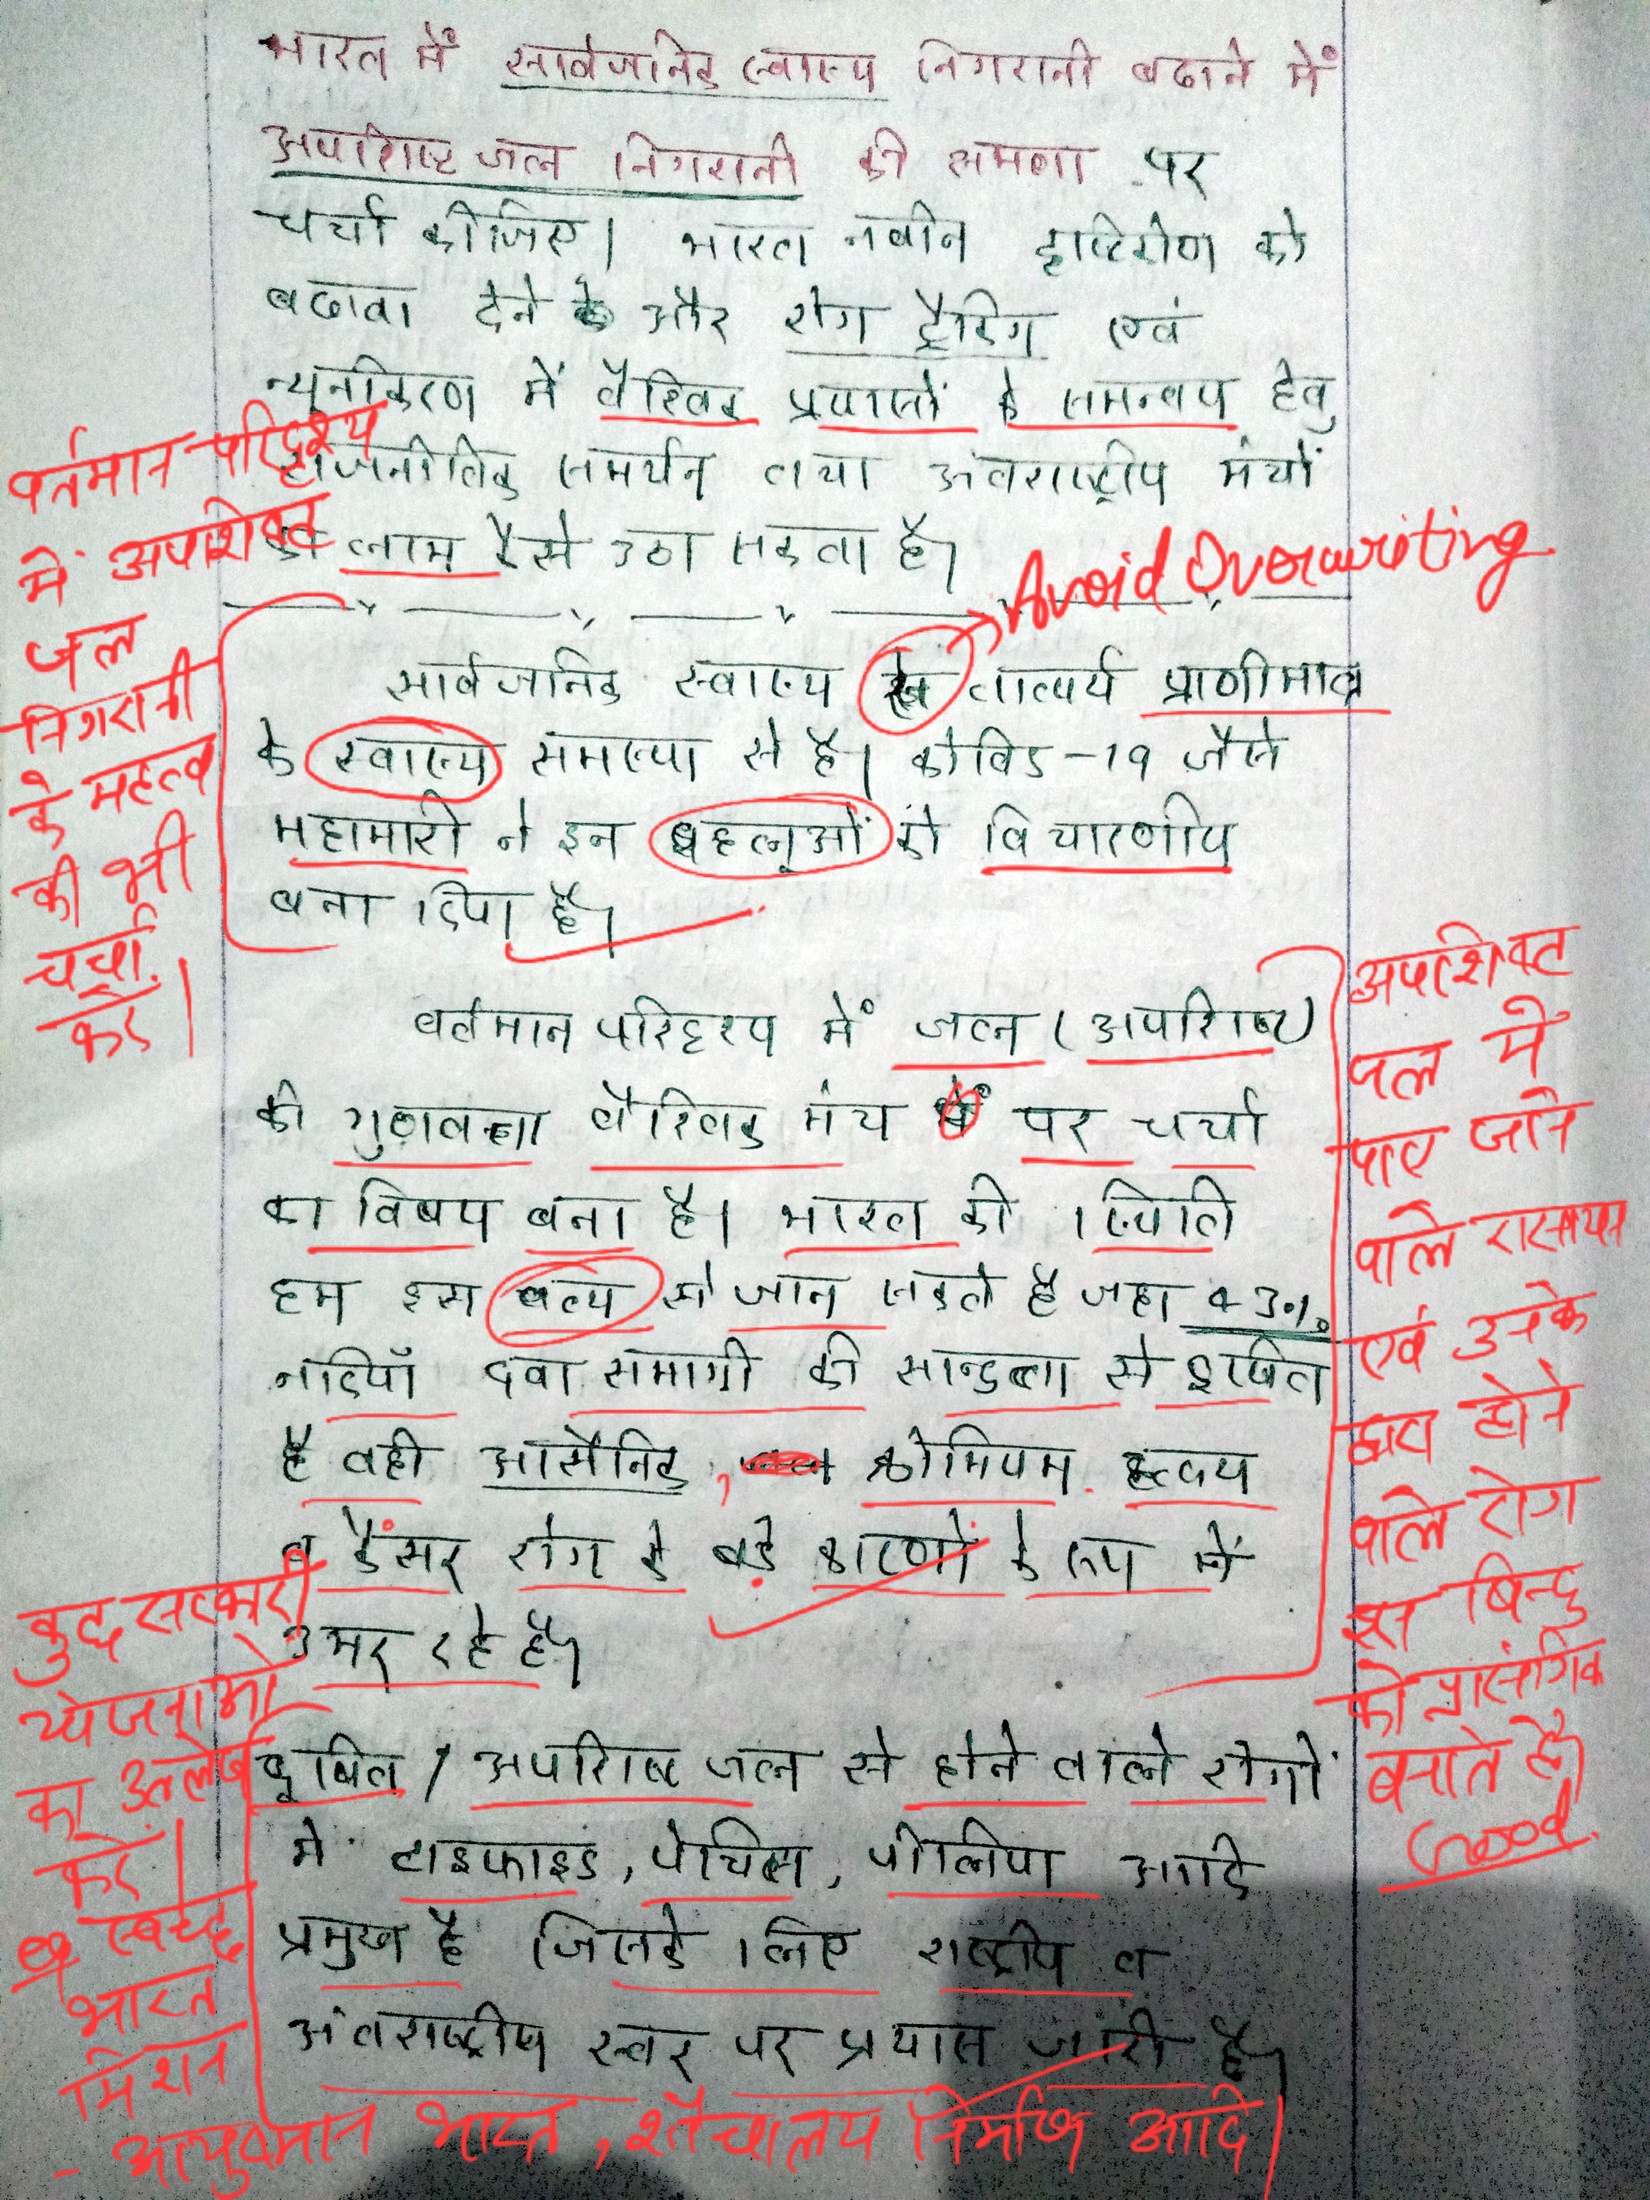 भारत में सार्वजनिक स्वास्थ्य निगरानी बढाने में
अपशिष्ट जल निगरानी की क्षमता पर
चर्चा कीजिए। भारत नवीन दृष्टिकोण को
बढावा देने के और रोग ट्रैकिंग एवं
न्यूनीकरण में वैश्विक प्रयासों के समन्वय हेतु
राजनीतिक समर्थन तथा अंतराष्ट्रीय मंचों
का लाभ कैसे उठा सकता है।
Avoid Overwriting
वर्तमान परिदृश्य
में अपशिष्ट
जल
निगरानी
के महत्व
की भी
चर्चा
करें।
सार्वजनिक स्वास्थ्य तात्पर्य प्राणीमात्र
के स्वास्थ्य समस्या से है। कोविड-19 जैसे
महामारी ने इन पहलूओं को विचारणीय
बना दिया है।
वर्तमान परिदृश्य में जल (अपशिष्ट)
की गुणवत्ता वैश्विक मंच पर चर्चा
का विषय बना है। भारत की स्थिति
हम इस तथ्य से जान सकते है जहा 43%
नदियाँ दवा समाग्री की सान्द्रता से दूषित
है वही आर्सेनिक, क्रोमियम हृदय
व कैंसर रोग के बड़े कारणों के रूप में
उभर रहे है।
अपशिष्ट
जल में
पाए जाने
वाले रासायन
एवं उनके
द्वारा होने
वाले रोग
इस बिन्दु
को प्रासंगिक
बनाते है।
Good.
दूषित / अपशिष्ट जल से होने वाले रोगों
में टाइफाइड, पेचिस, पोलियो आदि
प्रमुख है जिसके लिए राष्ट्रीय व
अंतराष्ट्रीय स्तर पर प्रयास जारी है।
कुछ सरकारी
योजनाओ
का उल्लेख
करें।
स्वच्छ
भारत
मिशन
- आयुष्मान भारत, शौचालय निर्माण आदि।